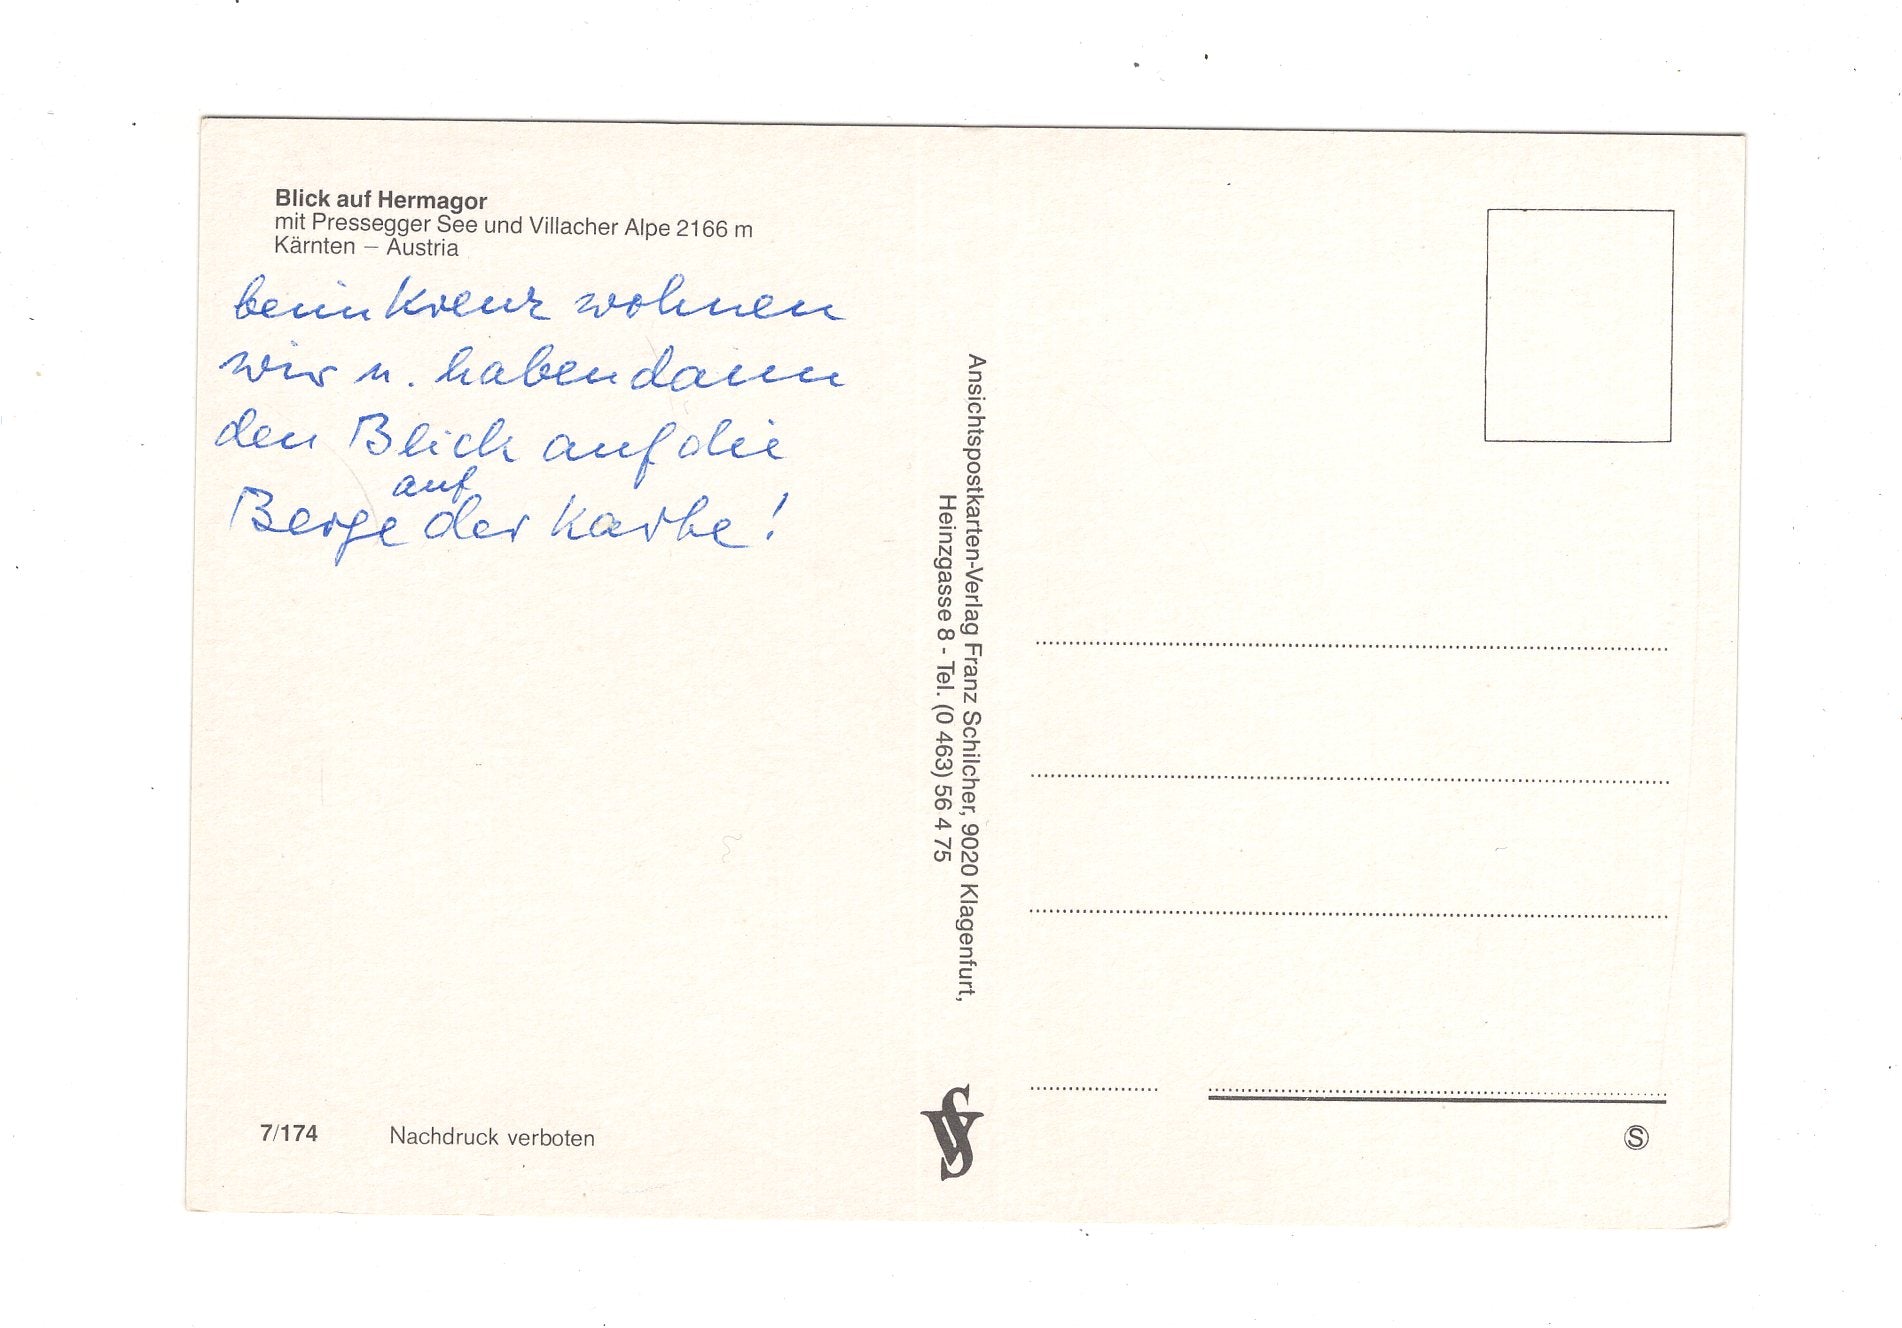 Blick auf Hermagor
mit Pressegger See und Villacher Alpe 2166 m
Kärnten – Austria
beim Kreuz wohnen
wir u. haben dann
den Blick auf die
Berge auf der Karte!
Ansichtspostkarten-Verlag Franz Schilcher, 9020 Klagenfurt,
Heinzgasse 8 - Tel. (0 463) 56 4 75
7/174 Nachdruck verboten
VS
S